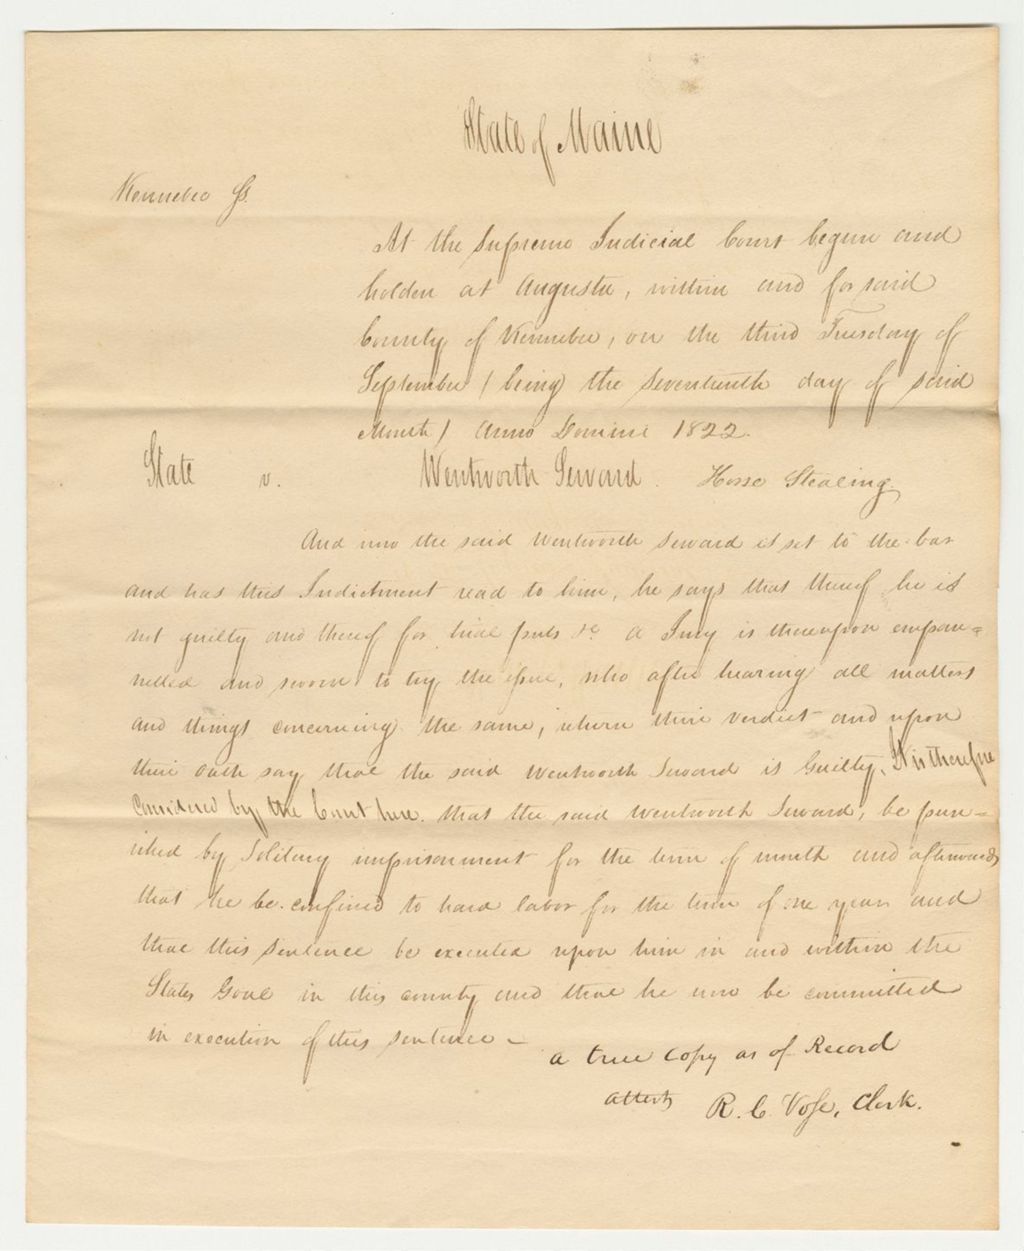 State of Maine
Kennebec Ss.
At the Supreme Judicial Court begun and
holden at Augusta, within and for said
County of Kennebec, on the third Tuesday of
September (being the seventeenth day of said
Month) Anno Domini 1822.
State v. Wentworth Seward. Horse Stealing
And now the said Wentworth Seward is set to the bar
and has this Indictment read to him, he says that thereof he is
not guilty and thereof for trial puts &c a Jury is thereupon empan=
nelled and sworn to try the issue, who after hearing all matters
and things concerning the same, return their verdict and upon
their oath say that the said Wentworth Seward is Guilty. It is therefore
considered by the Court here. that the said Wentworth Seward, be pun=
ished by Solitary imprisonment for the term of month and afterwards
that he be confined to hard labor for the term of one year and
that this sentence be executed upon him in and within the
States Goal in this county and that he now be committed
in execution of this sentence -
a true copy as of Record
attest R. C. Vose, Clerk.